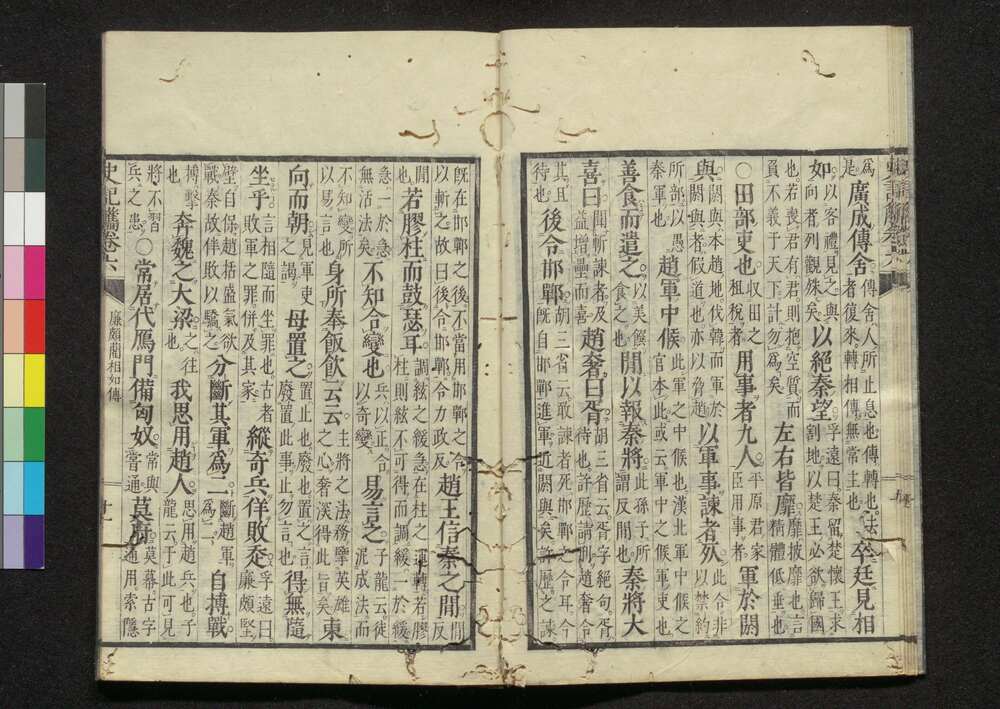 為是廣成傳舍傳舍人所止息也傳轉也去者復來轉相傳無常主也卒廷見相
如○以客禮見之與向者列觀殊矣以絕秦望孚遠曰秦留楚懷王求割地以楚王必欲歸國
也若喪君有君則抱空質而員不義于天下計勿為矣左右皆靡靡披靡也言精體低垂也
○田部吏也收田之租稅者用事者九人平原君家臣用事者軍於閼
與閼與本趙地伐韓而軍於閼與者假道也亦以脅趙以軍事諫者死此令非以禁約
所部以愚秦軍也趙軍中候此軍之中候也漢北軍中候之官本此或云軍中之候軍吏也
善食而遣之以美餱食之也間以報秦將此孫子所謂反間也秦將大
喜曰聞斬諫者及益增壘而喜趙奢曰胥胡三省云胥字絕句胥待也許歷請刑趙奢令
其且待也後令邯鄲胡三省云敢諫者死邯鄲之令耳今既自邯鄲進軍近閼與矣許歷之諫
既在邯鄲之後不當用邯鄲之令以斬之故曰後令邯鄲令力政反趙王信秦之間間
間若膠柱而鼓瑟耳調絃之緩急在柱之運轉若膠柱則絃不可得而調緩一於緩
急一於急無活法矣不知合變也兵以正合以奇變易言之子龍云徒泥成法而
不知變所以易言也身所奉飯飲云云主將之法務擥英雄之心奢深得此旨矣東
向而朝見軍吏之謁母置之置止也廢也置之言廢置此事止勿言也得無隨
坐乎言相隨而坐罪也古者敗軍之罪併及其家縱奇兵佯敗走孚遠曰廉頗堅
壁自保趙括盛氣欲戰秦故佯敗以驕之分斷其軍為二斷趙軍為二自搏戰
搏擊也奔魏之大梁之往也我思用趙人思用趙兵也子龍云于此可見
將不習兵之患○常居代鴈門備匈奴常與嘗通莫府莫幕古字通用索隱
廉頗藺相如傳
十一